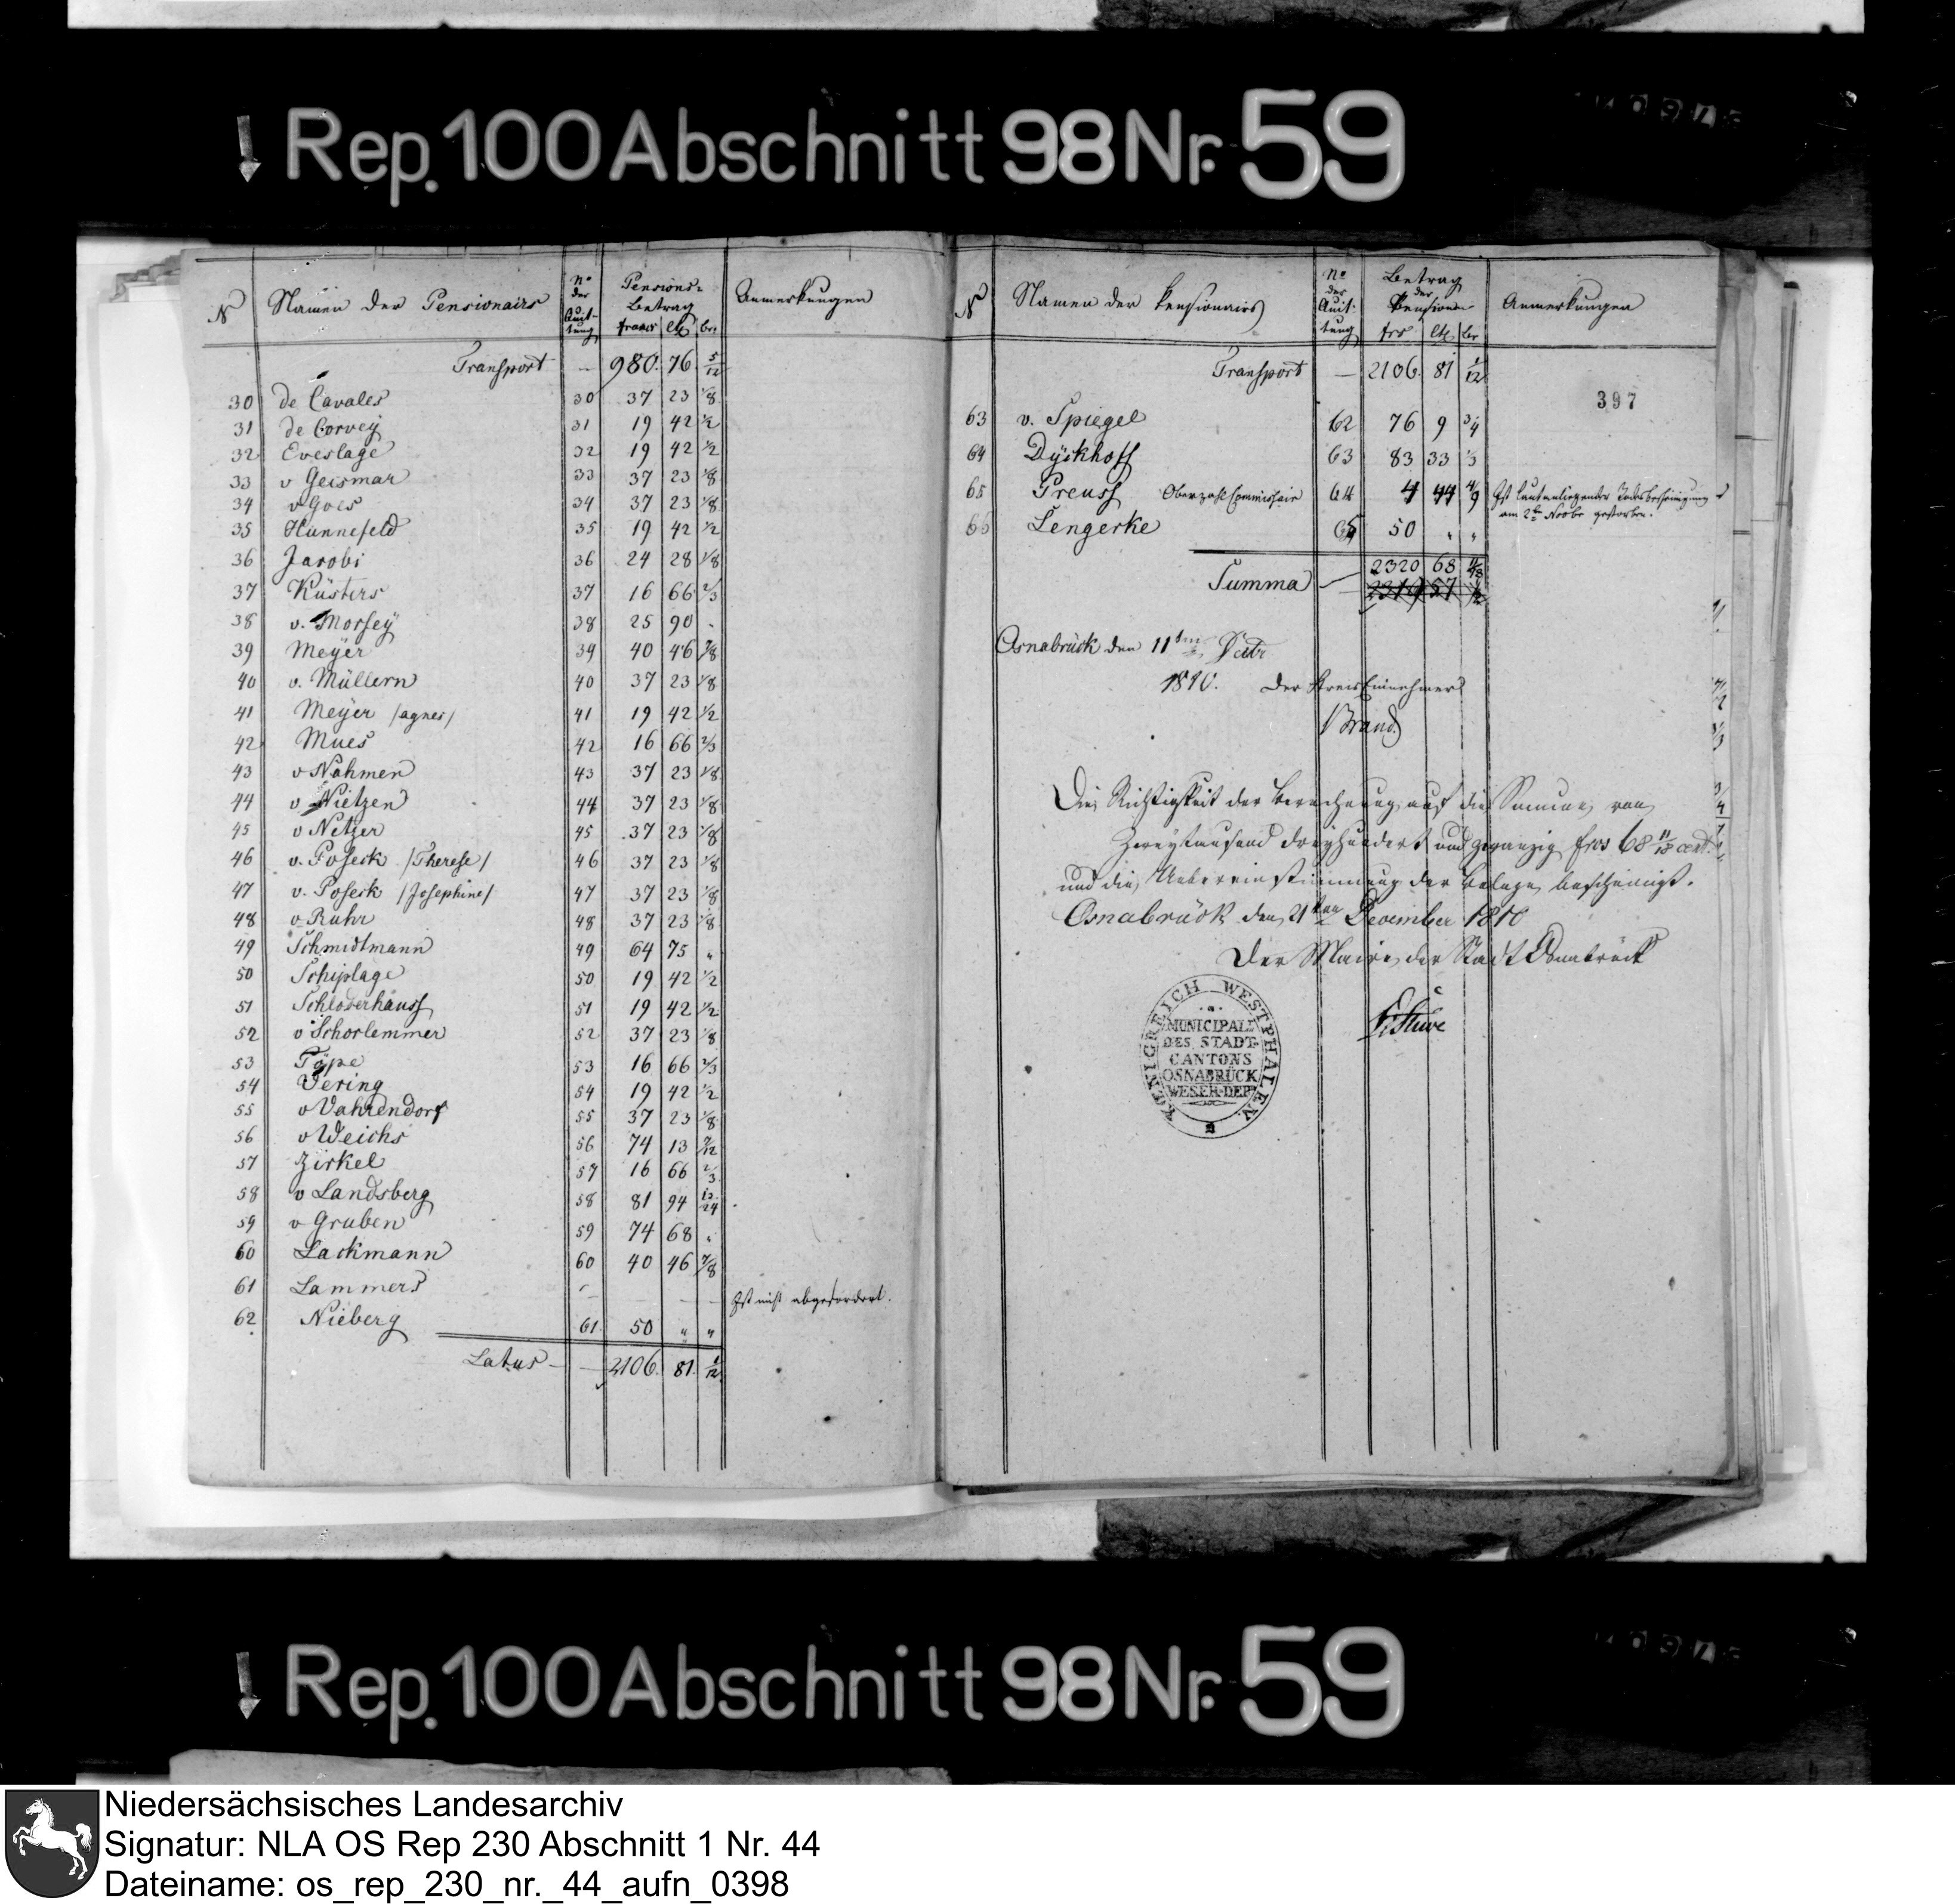 Rep. 100 Abschnitt 98 Nr. 59
N Namen der Pensionairs No der Quit- tung Pensions- Betrag francs Ct br Anmerkungen
Transport - 980. 76 5/12
30 de Cavales 30 37 23 1/8
31 de Corvey 31 19 42 1/2
32 Eveslage 32 19 42 1/2
33 v Geismar 33 37 23 1/8
34 v Goes 34 37 23 1/8
35 Hünnefeld 35 19 42 1/2
36 Jacobi 36 24 28 1/8
37 Küsters 37 16 66 2/3
38 v. Morsey 38 25 90 -
39 Meyer 39 40 46 7/8
40 v. Müllern 40 37 23 1/8
41 Meyer /agnes/ 41 19 42 1/2
42 Mues 42 16 66 2/3
43 v Nahmen 43 37 23 1/8
44 v Nietzen 44 37 23 1/8
45 v Netzer 45 37 23 1/8
46 v. Poseck /Therese/ 46 37 23 1/8
47 v. Poseck /Josephine/ 47 37 23 1/8
48 v Ruhr 48 37 23 1/8
49 Schmidtmann 49 64 75 "
50 Schiplage 50 19 42 1/2
51 Schloderhauss 51 19 42 1/2
52 v Schorlemmer 52 37 23 1/8
53 Type 53 16 66 2/3
54 Vering 54 19 42 1/2
55 v Vahrendorf 55 37 23 1/8
56 v Weichs 56 74 13 7/12
57 Zirkel 57 16 66 2/3
58 v Landsberg 58 81 94 13/24
59 v Gruben 59 74 68 "
60 Lackmann 60 40 46 7/8
61 Lammers - - - - Ist nicht abgefordert.
62 Nieberg 61 50 " "
Latus - - 2106. 81. 1/12
N Namen der Pensionairs No der Quit- tung Betrag der Pensionen frs Ct br Anmerkungen
Transport - 2106. 81 1/12
397
63 v. Spiegel 62 76 9 3/4
64 Dyckhoff 63 83 33 1/3
65 Preuss Oberzahlcommissair 64 4 44 4/9 Ist laut anliegender Todesbescheinigung
am 2ten Novbr gestorben.
66 Lengerke 65 50 " "
2320 68 11/18
Summa - 2319 57 1/2
Osnabrück den 11ten Xbr
1810. Der Kreis Einnehmer
Brand
Die Richtigkeit der Berechnung auf die Summe von
Zweytausend dreyhundert und zwanzig frcs 68 11/18 cent.
und die Uebereinstimmung der Belege bescheinigt.
Osnabrück den 21ten December 1810
Der Maire der Stadt Osnabrück
Stüve
KÖNIGREICH WESTPHALEN
MUNICIPALT
DES STADT-
CANTONS
OSNABRÜCK
WESER-DEP.
Rep. 100 Abschnitt 98 Nr. 59
Niedersächsisches Landesarchiv
Signatur: NLA OS Rep 230 Abschnitt 1 Nr. 44
Dateiname: os_rep_230_nr._44_aufn_0398